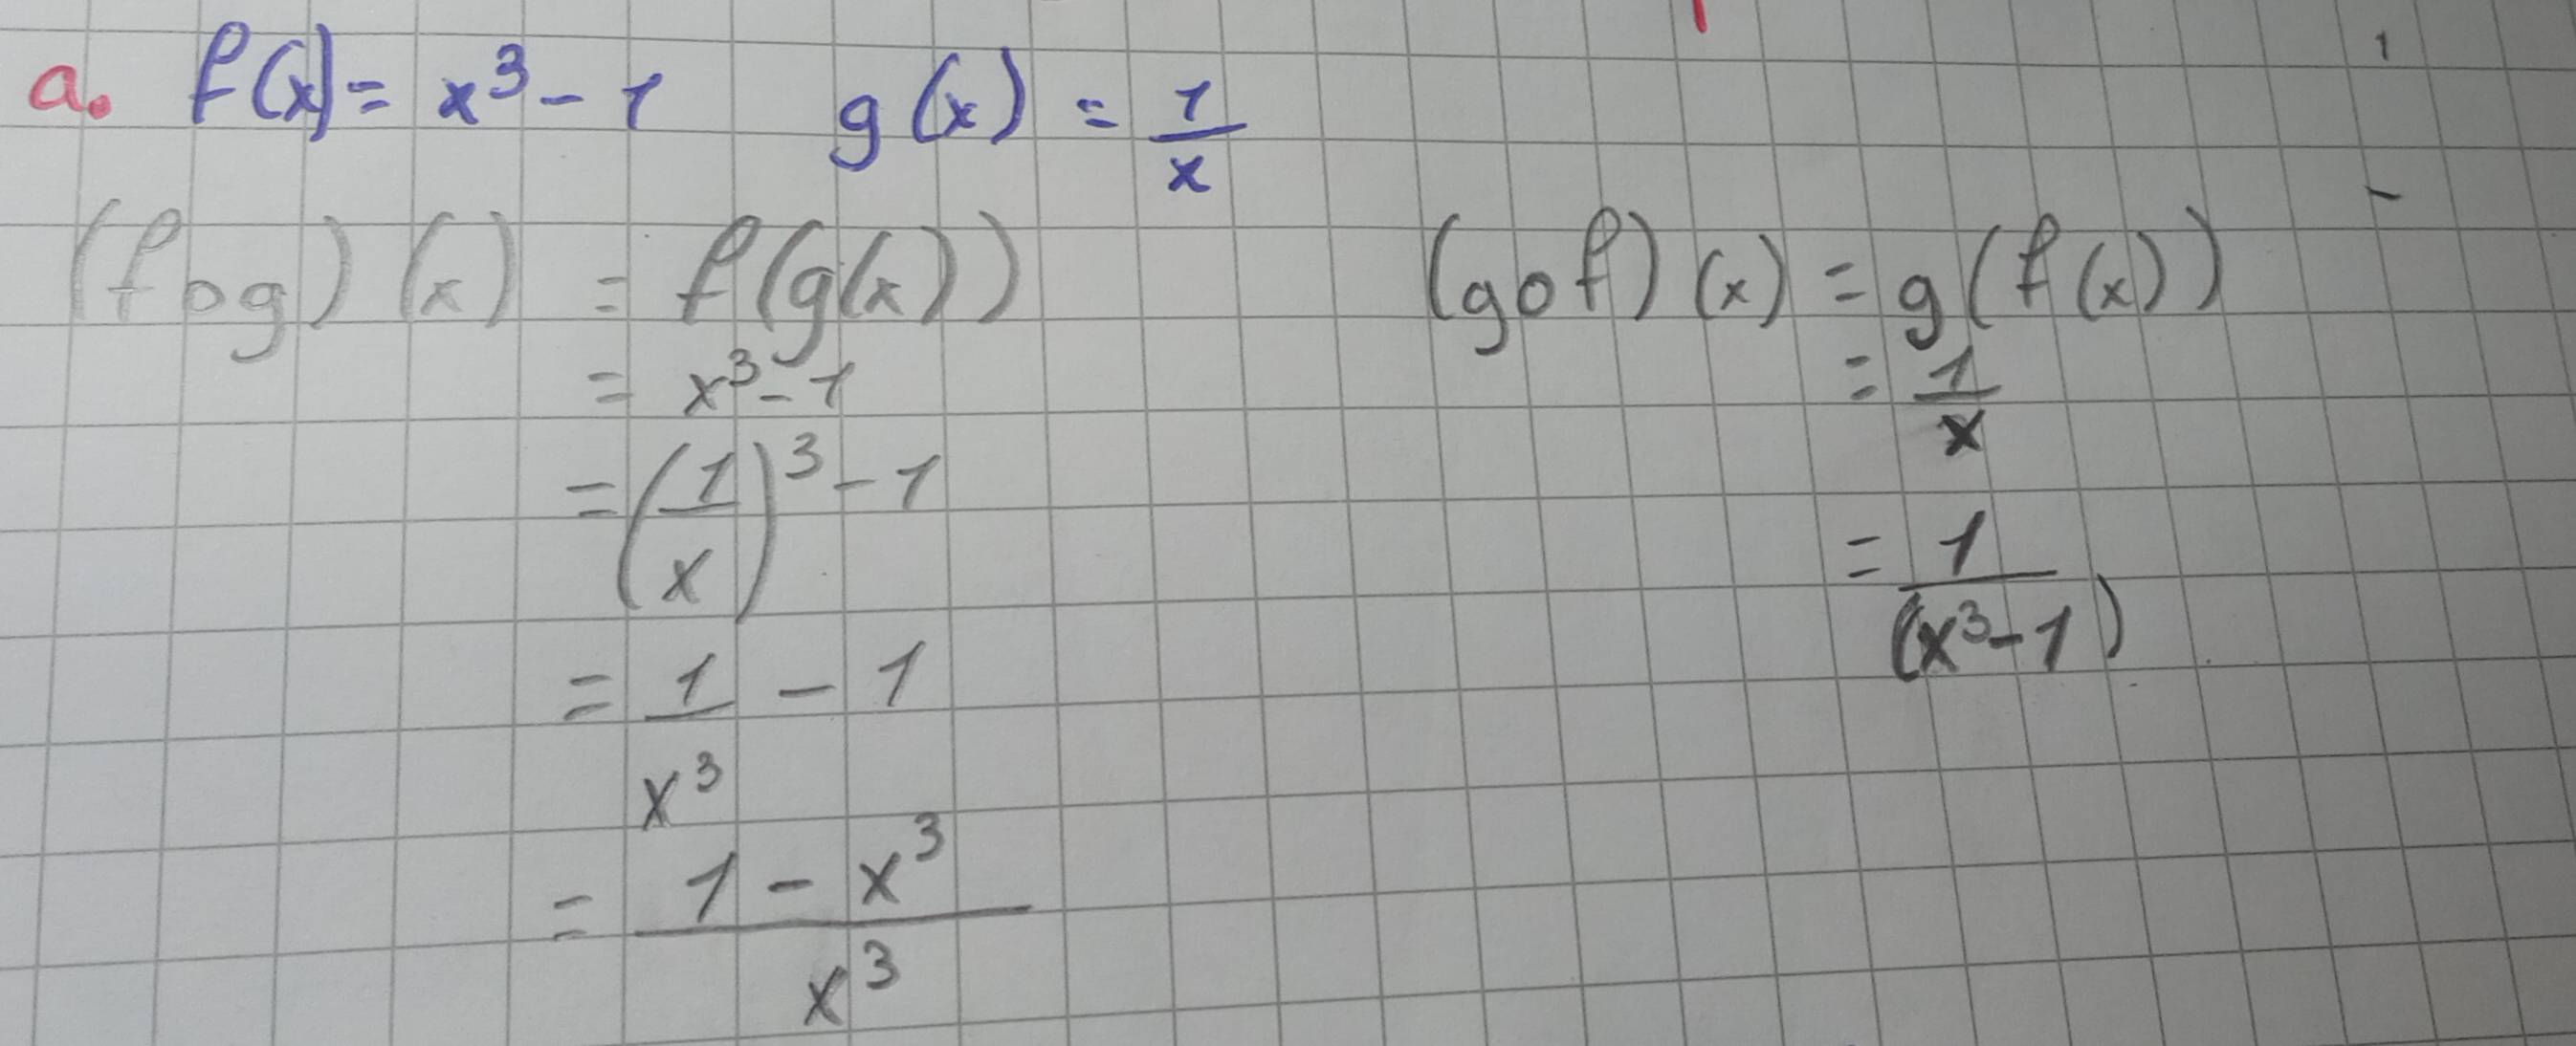 a. f(x) = x³ - 1   g(x) = 1/x
(fog)(x) = f(g(x))
= x³ - 1
= (1/x)³ - 1
= 1/x³ - 1
= (1 - x³)/x³
(gof)(x) = g(f(x))
= 1/x
= 1/(x³-1)